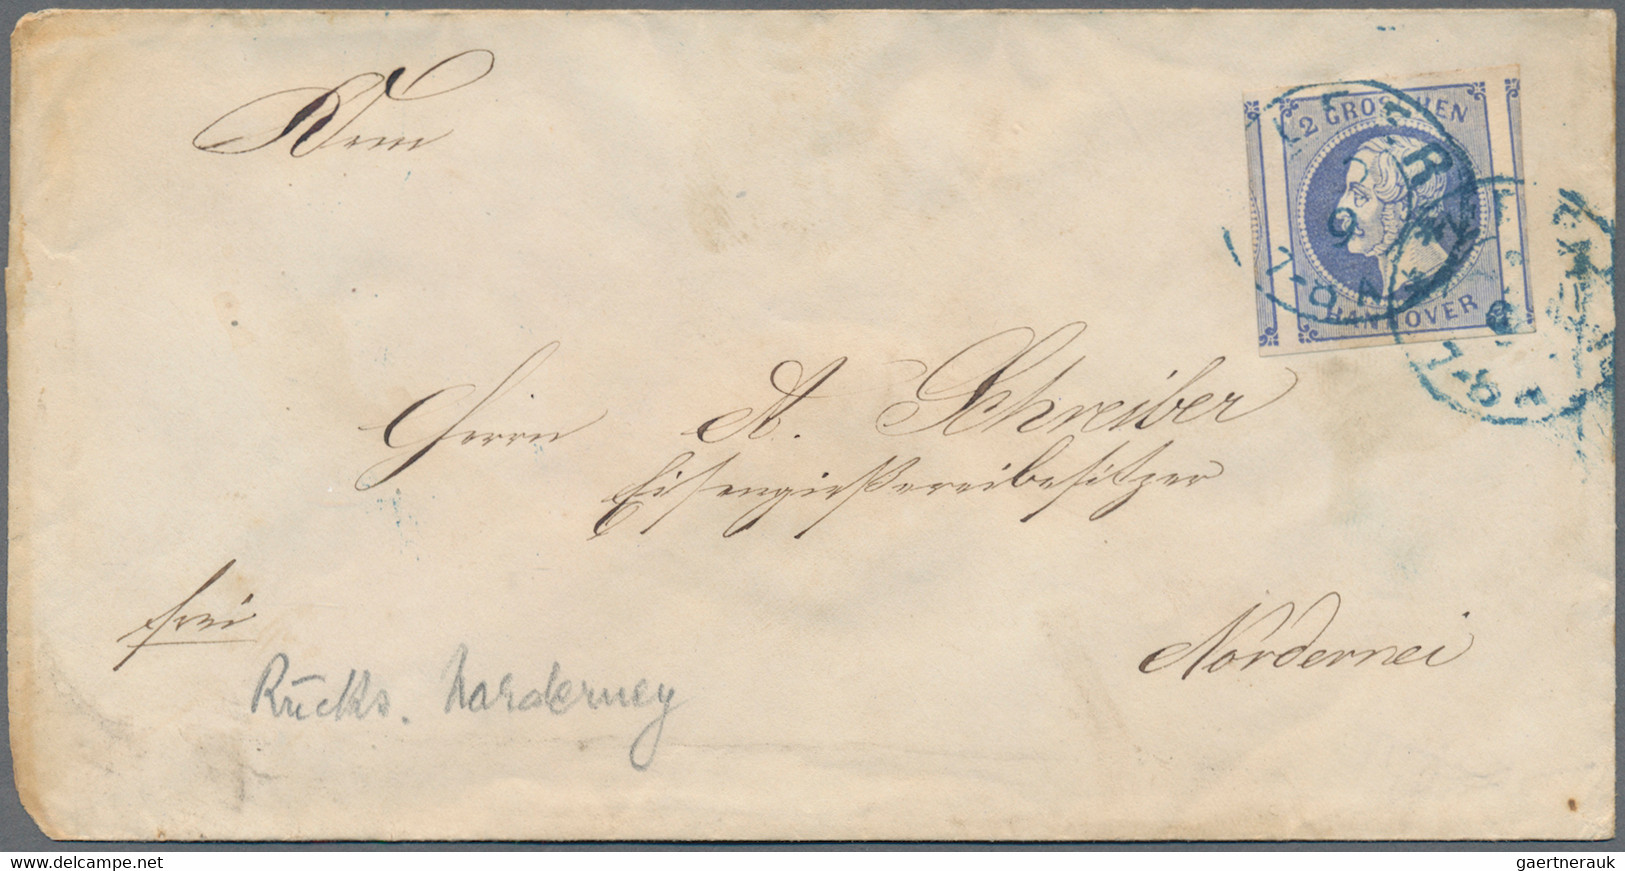 Dem
2 GROSCHEN
HANNOVER
Herrn A. Schreiber
Eisengießereibesitzer
frei
Nordernei
Rücks. Norderney
gaertnerauk